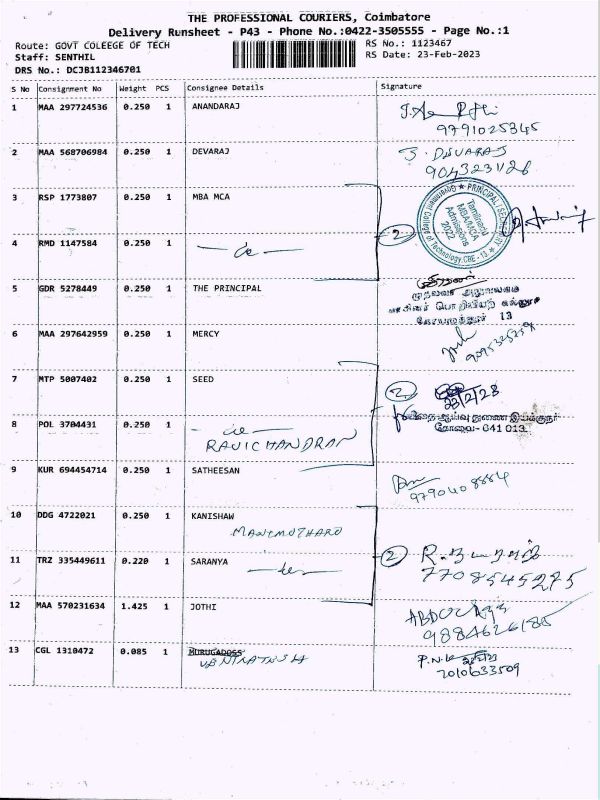 THE PROFESSIONAL COURIERS, Coimbatore
Delivery Runsheet - P43 - Phone No.:0422-3505555 - Page No.:1
Route: GOVT COLEEGE OF TECH RS No.: 1123467
Staff: SENTHIL RS Date: 23-Feb-2023
DRS No.: DCJB112346701
S No Consignment No Weight PCS Consignee Details Signature
1 MAA 297724536 0.250 1 ANANDARAJ
9791025345
2 MAA 568706984 0.250 1 DEVARAJ
3 RSP 1773807 0.250 1 MBA MCA
PRINCIPAL / SECRETARY
Government College of Technology, CBE - 13
Tamilnadu
MBA/MCA
Admissions
2022
2
4 RMD 1147584 0.250 1
5 GDR 5278449 0.250 1 THE PRINCIPAL
முதல்வர் அலுவலகம்
13
6 MAA 297642959 0.250 1 MERCY
7 MTP 5007402 0.250 1 SEED
2 23/2/23
8 POL 3704431 0.250 1
துணை இயக்குநர்
கோவை- 641 013.
RAVICHANDRAN
9 KUR 694454714 0.250 1 SATHEESAN
9790408884
10 DDG 4722021 0.250 1 KANISHAW
11 TRZ 335449611 0.220 1 SARANYA
2
7708545275
12 MAA 570231634 1.425 1 JOTHI
9884626185
13 CGL 1310472 0.085 1 MURUGADOSS
P.N.K